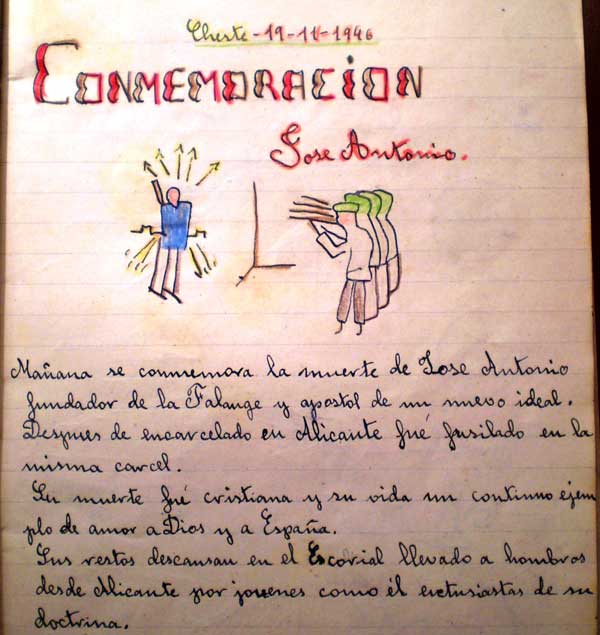 Cheste-19-11-1946
CONMEMORACION
Jose Antonio.
Mañana se conmemora la muerte de Jose Antonio
fundador de la Falange y apostol de un nuevo ideal.
Despues de encarcelado en Alicante fué fusilado en la
misma carcel.
Su muerte fué cristiana y su vida un continuo ejem
plo de amor a Dios y a España.
Sus restos descansan en el Escorial llevado a hombros
desde Alicante por jovenes como él entusiastas de su
doctrina.